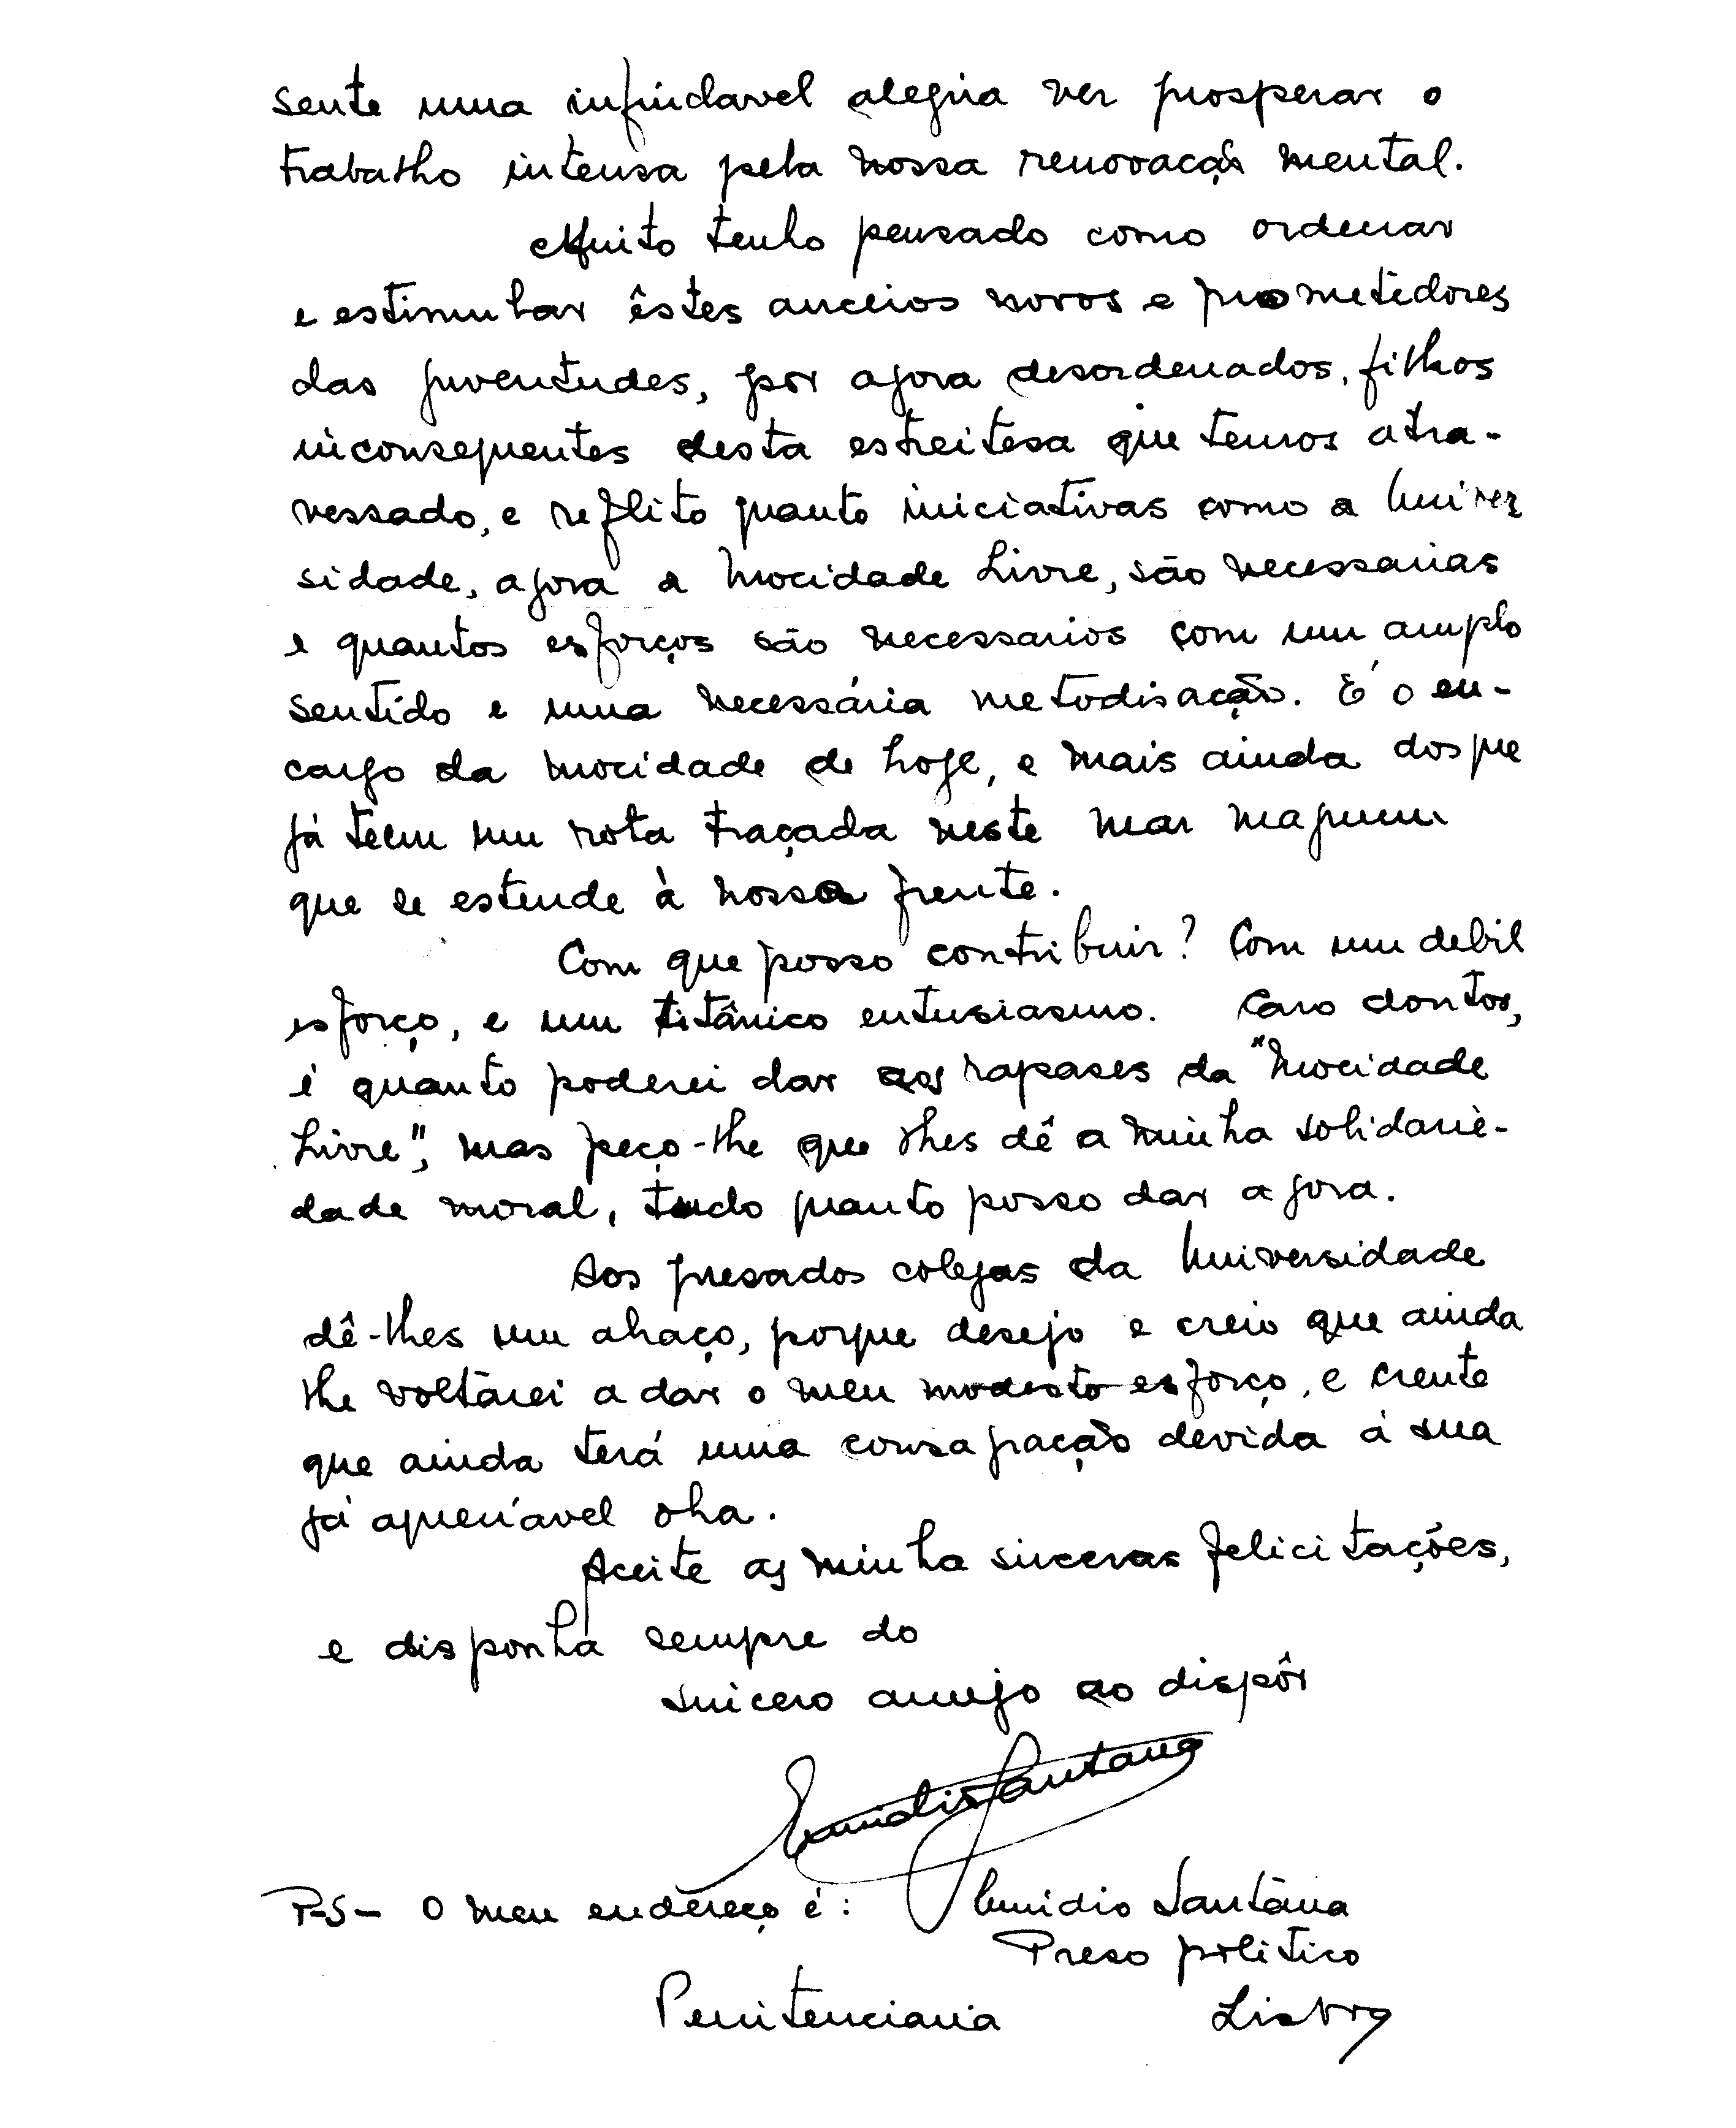 sente uma infindavel alegria ver prosperar o
trabalho intensa pela nossa renovação mental.
Muito tenho pensado como ordenar
e estimular êstes anceios novos e prometedores
das juventudes, por agora desordenados, filhos
inconsequentes desta estreitesa que temos atra-
vessado, e reflito quanto iniciativas como a Univer
sidade, agora a Mocidade Livre, são necessarias
e quantos esforços são necessarios com um amplo
sentido e uma necessária metodisação. É o en-
cargo da mocidade de hoje, e mais ainda dos que
já teem um rota traçada neste mar magnum
que se estende à nossa frente.
Com que posso contribuir? Com um debil
esforço, e um titânico entusiasmo. Caro doutor,
é quanto poderei dar aos rapases da "Mocidade
Livre", mas peço-lhe que lhes dê a minha solidarie-
dade moral, tudo quanto posso dar agora.
Aos presados colegas da Universidade
dê-lhes um abraço, porque desejo e creio que ainda
lhe voltarei a dar o meu modesto esforço, e crente
que ainda terá uma consagração devida á sua
já apreciável obra.
Aceite as minha sinceras felicitações,
e disponha sempre do
sincero amigo ao dispôr
Emidio Santana
P-S- O meu endereço é: Emidio Santâna
Preso politico
Penitenciaria Lisboa